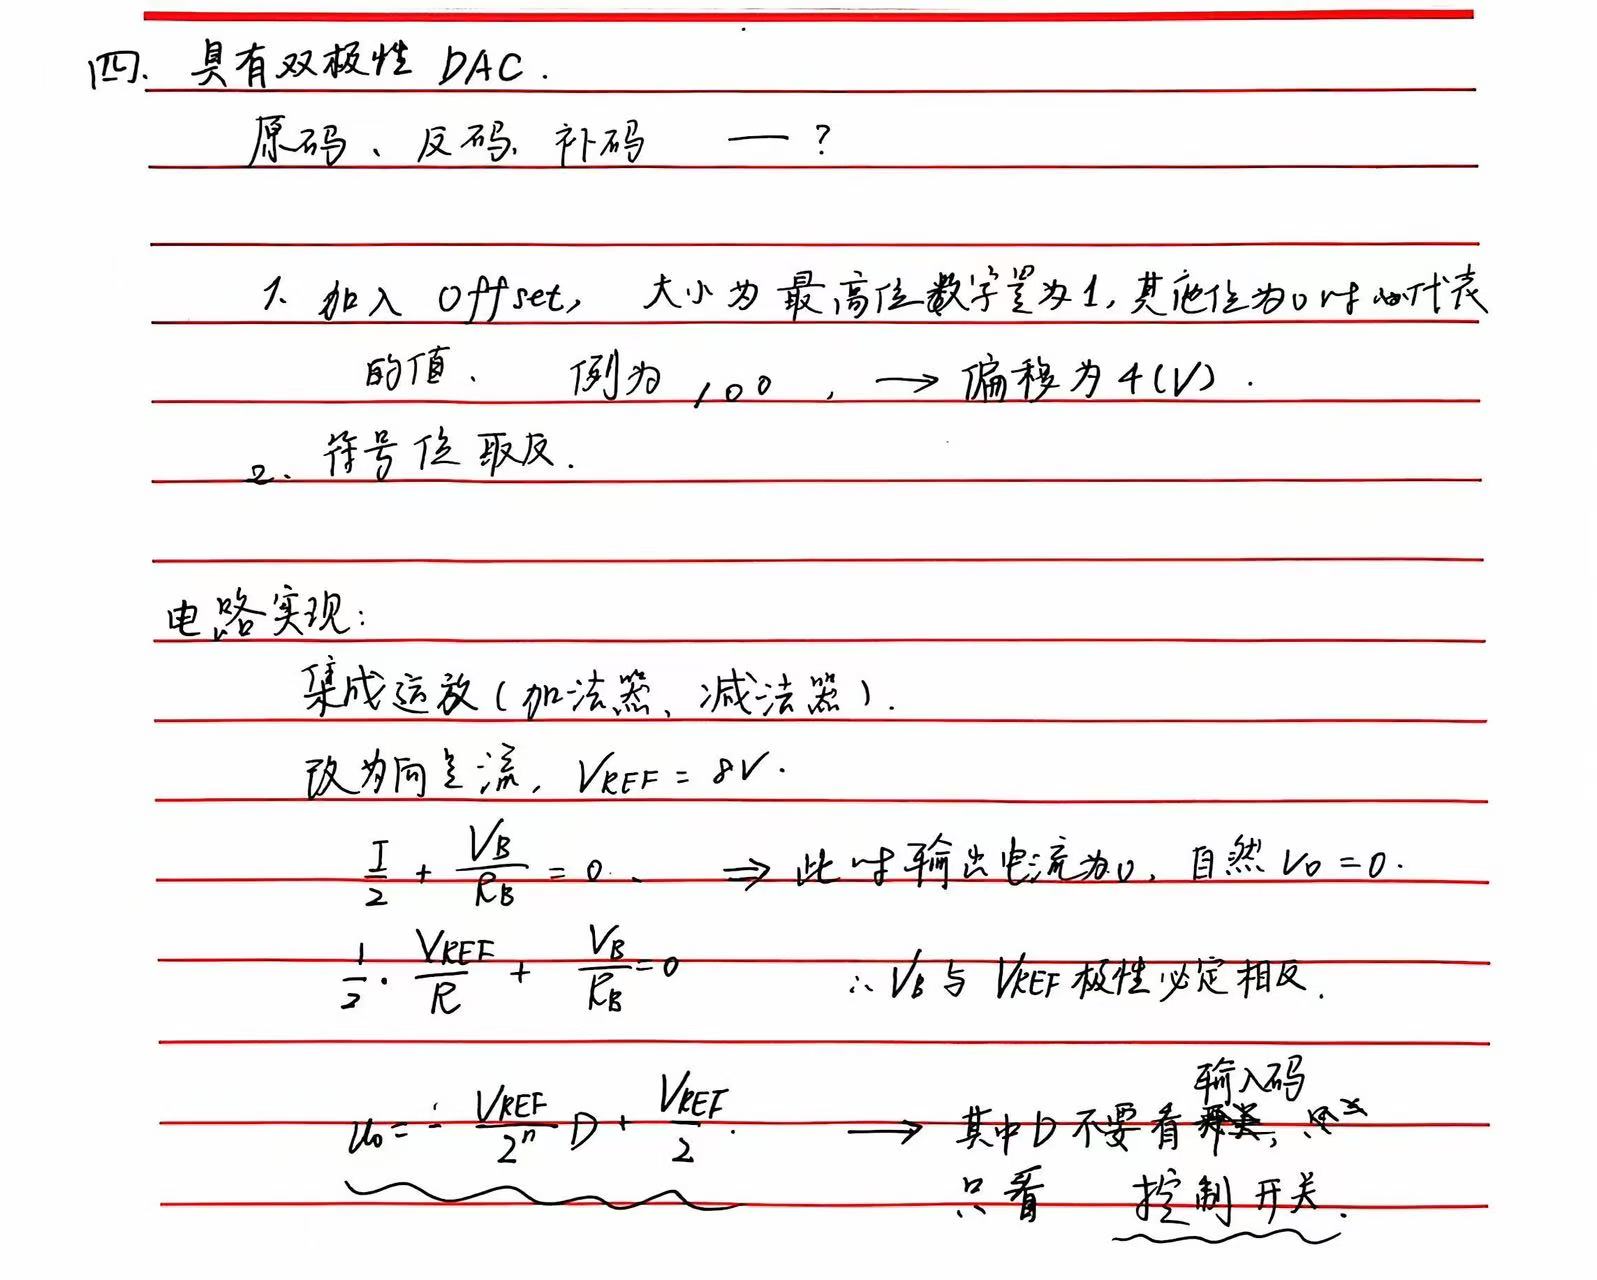 四. 具有双极性 DAC.
原码、反码、补码 — ?
1. 加入 offset, 大小为最高位数字置为1, 其他位为0时所代表
的值. 例为 100, → 偏移为 4(V).
2. 符号位取反.
电路实现:
集成运放(加法器、减法器).
改为向 流, VREF = 8V.
I/2 + VB/RB = 0. ⇒ 此时输出电流为0, 自然 Vo = 0.
1/2 · VREF/R + VB/RB = 0 ∴ VB与 VREF 极性必定相反.
输入码
uo = - VREF/2ⁿ D + VREF/2. → 其中D不要看
只看 控制开关.